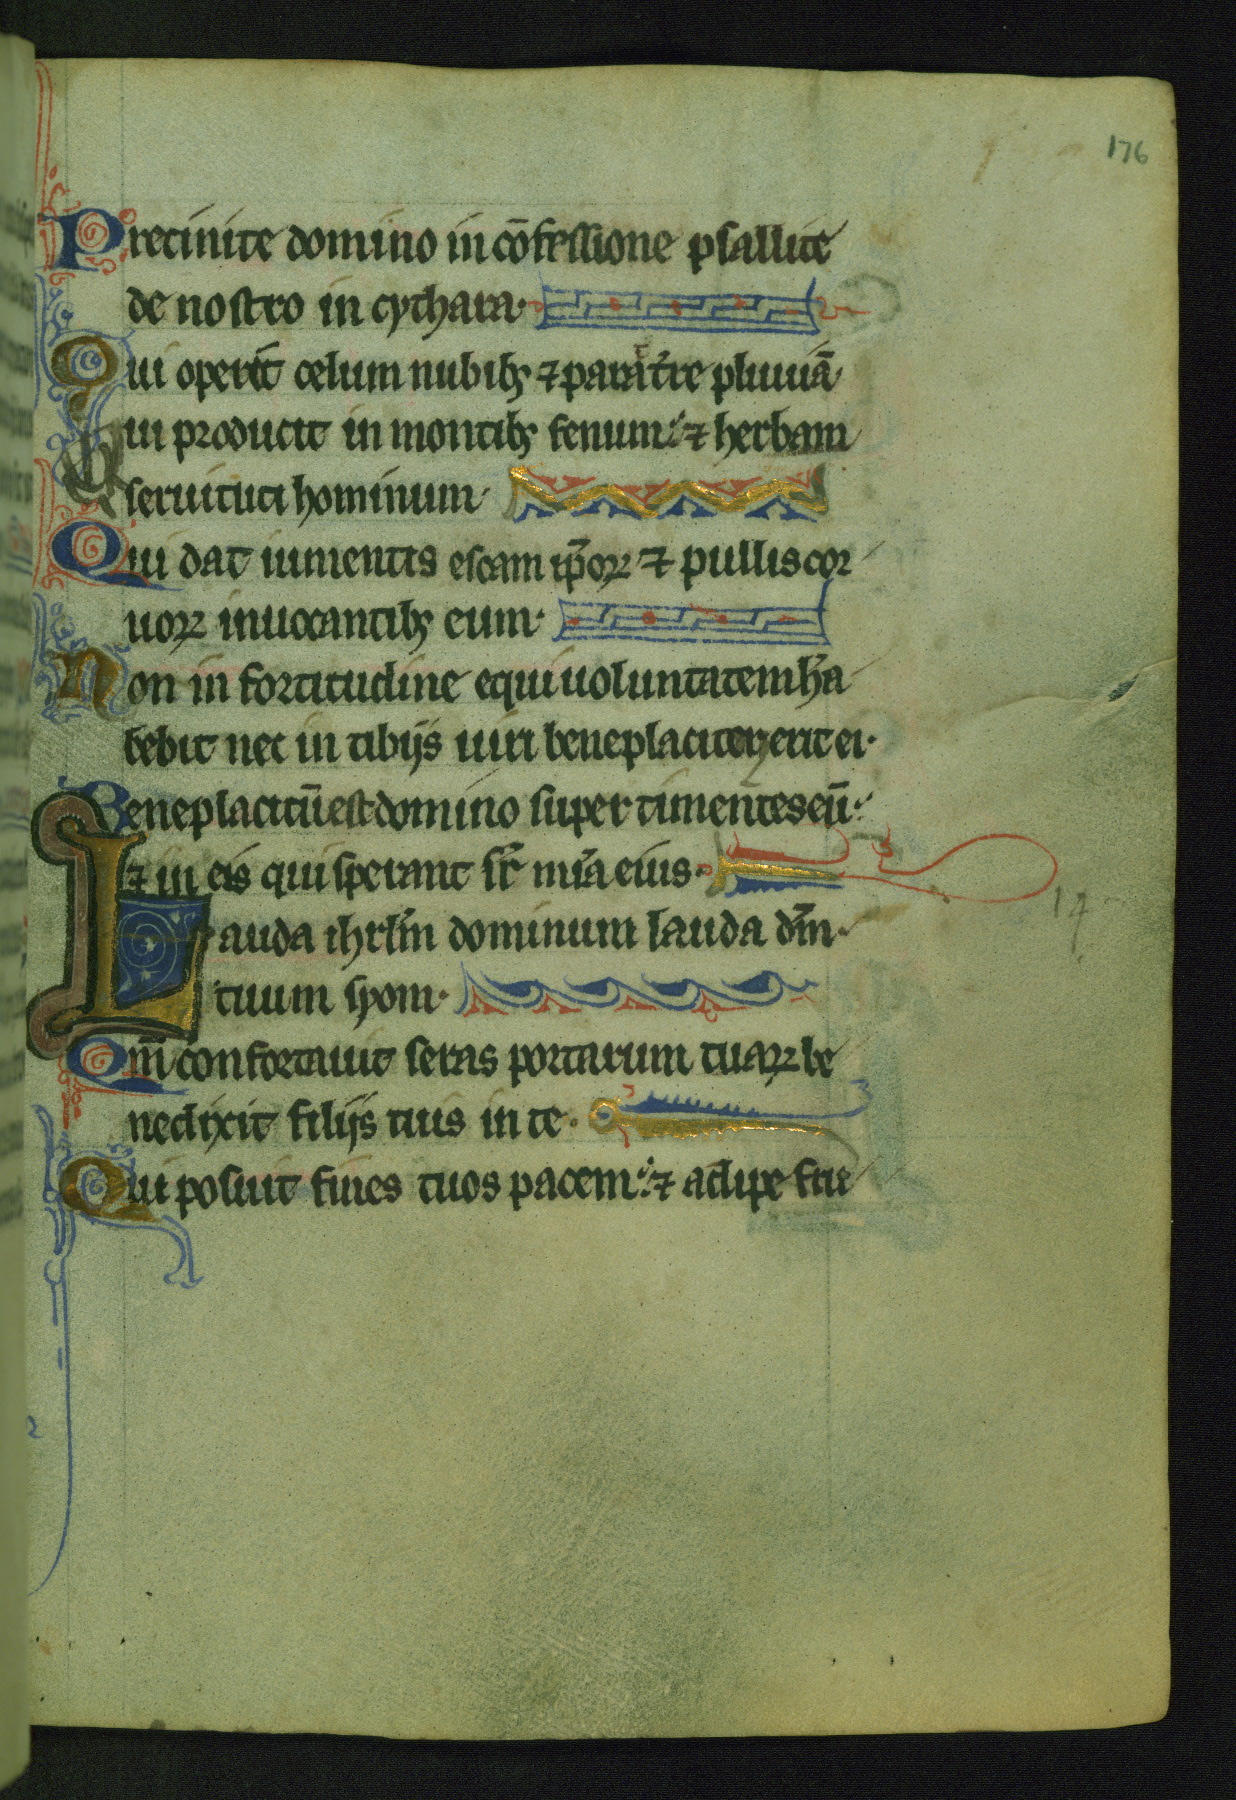 176
Precinite domino in cōfessione psallite
de nostro in cythara·
Qui operit celum nubibꝫ ⁊ parat t̄re pluuiā
Qui producit in montibꝫ fenum: ⁊ herbam
seruituti hominum·
Qui dat iumentis escam ip̄oꝝ ⁊ pullis cor
uoꝝ inuocantibꝫ eum·
Non in fortitudine equi uoluntatem ha
bebit nec in tibijs uiri beneplacitū erit ei·
Beneplacitū est domino super timentes eū:
⁊ in eis qui sperant sr̄ mīa eius·
Lauda ihrl̄m dominum lauda dm̄·
tuum syon·
Qm̄ confortauit seras portarum tuaꝝ be
nedixit filijs tuis in te·
Qui posuit fines tuos pacem: ⁊ adipe fru